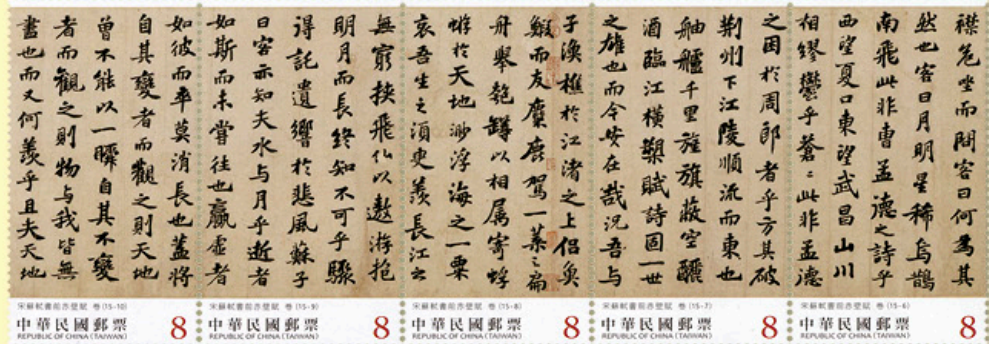 襟危坐而問客曰何為其
然也客曰月明星稀烏鵲
南飛此非曹孟德之詩乎
西望夏口東望武昌山川
相繆鬱乎蒼〻此非孟德
之困於周郎者乎方其破
荊州下江陵順流而東也
舳艫千里旌旗蔽空釃
酒臨江橫槊賦詩固一世
之雄也而今安在哉況吾與
子漁樵於江渚之上侶魚
鰕而友麋鹿駕一葉之扁
舟舉匏罇以相属寄蜉
蝣於天地渺浮海之一粟
哀吾生之須臾羨長江之
無窮挾飛仙以遨遊抱
明月而長終知不可乎驟
得託遺響於悲風蘇子
曰客亦知夫水與月乎逝者
如斯而未嘗往也贏虛者
如彼而卒莫消長也蓋將
自其變者而觀之則天地
曾不能以一瞬自其不變
者而觀之則物与我皆無
盡也而又何羨乎且夫天地
宋蘇軾書前赤壁賦 卷 (15-10)
中華民國郵票 8
REPUBLIC OF CHINA (TAIWAN)
宋蘇軾書前赤壁賦 卷 (15-9)
中華民國郵票 8
REPUBLIC OF CHINA (TAIWAN)
宋蘇軾書前赤壁賦 卷 (15-8)
中華民國郵票 8
REPUBLIC OF CHINA (TAIWAN)
宋蘇軾書前赤壁賦 卷 (15-7)
中華民國郵票 8
REPUBLIC OF CHINA (TAIWAN)
宋蘇軾書前赤壁賦 卷 (15-6)
中華民國郵票 8
REPUBLIC OF CHINA (TAIWAN)